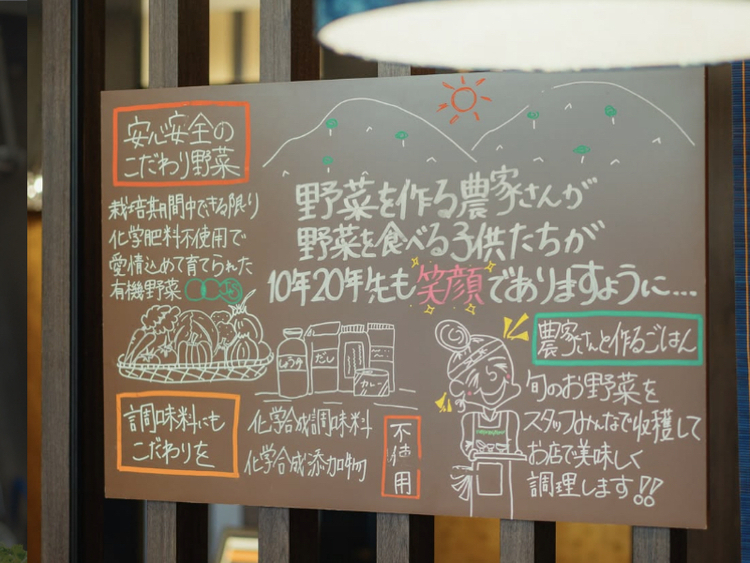 安心安全の
こだわり野菜
栽培期間中できる限り
化学肥料不使用で
愛情込めて育てられた
有機野菜
野菜を作る農家さんが
野菜を食べる子供たちが
10年20年先も笑顔でありますように...
しょうゆ
だし
カレー
調味料にも
こだわりを
化学合成調味料
化学合成添加物
不使用
農家さんと作るごはん
旬のお野菜を
スタッフみんなで収穫して
お店で美味しく
調理します!!